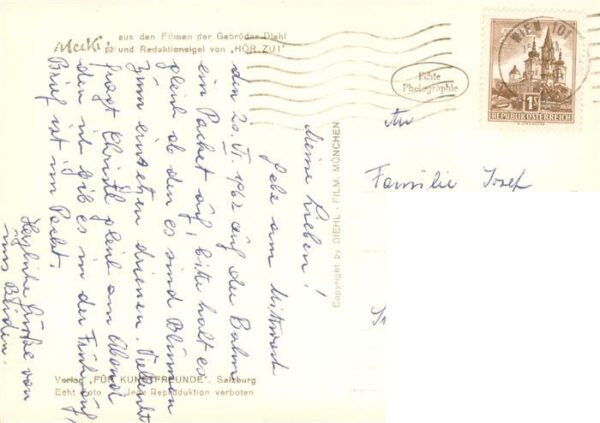 Mecki aus den Filmen der Gebrüder Diehl
und Redaktionsigel von "HÖR ZU!"
Meine Lieben!
Gebe am Mittwoch
den 20. VI. 1962 auf der Bahn
ein Packet auf, bitte halt es
gleich ab den es sind Blumen
zum einsetzen drinnen. Vielleicht
fragt Christl gleich am Abend
den ich gib es in der Früh auf,
Brief ist im Packt.
Herzliche Grüße von
uns Beiden.
Copyright by DIEHL-FILM, MÜNCHEN
Echte
Photographie
WIEN 101
1S
REPUBLIK ÖSTERREICH
An
Familie Josef
Verlag "FÜR KUNSTFREUNDE", Salzburg
Echt Foto Jede Reproduktion verboten